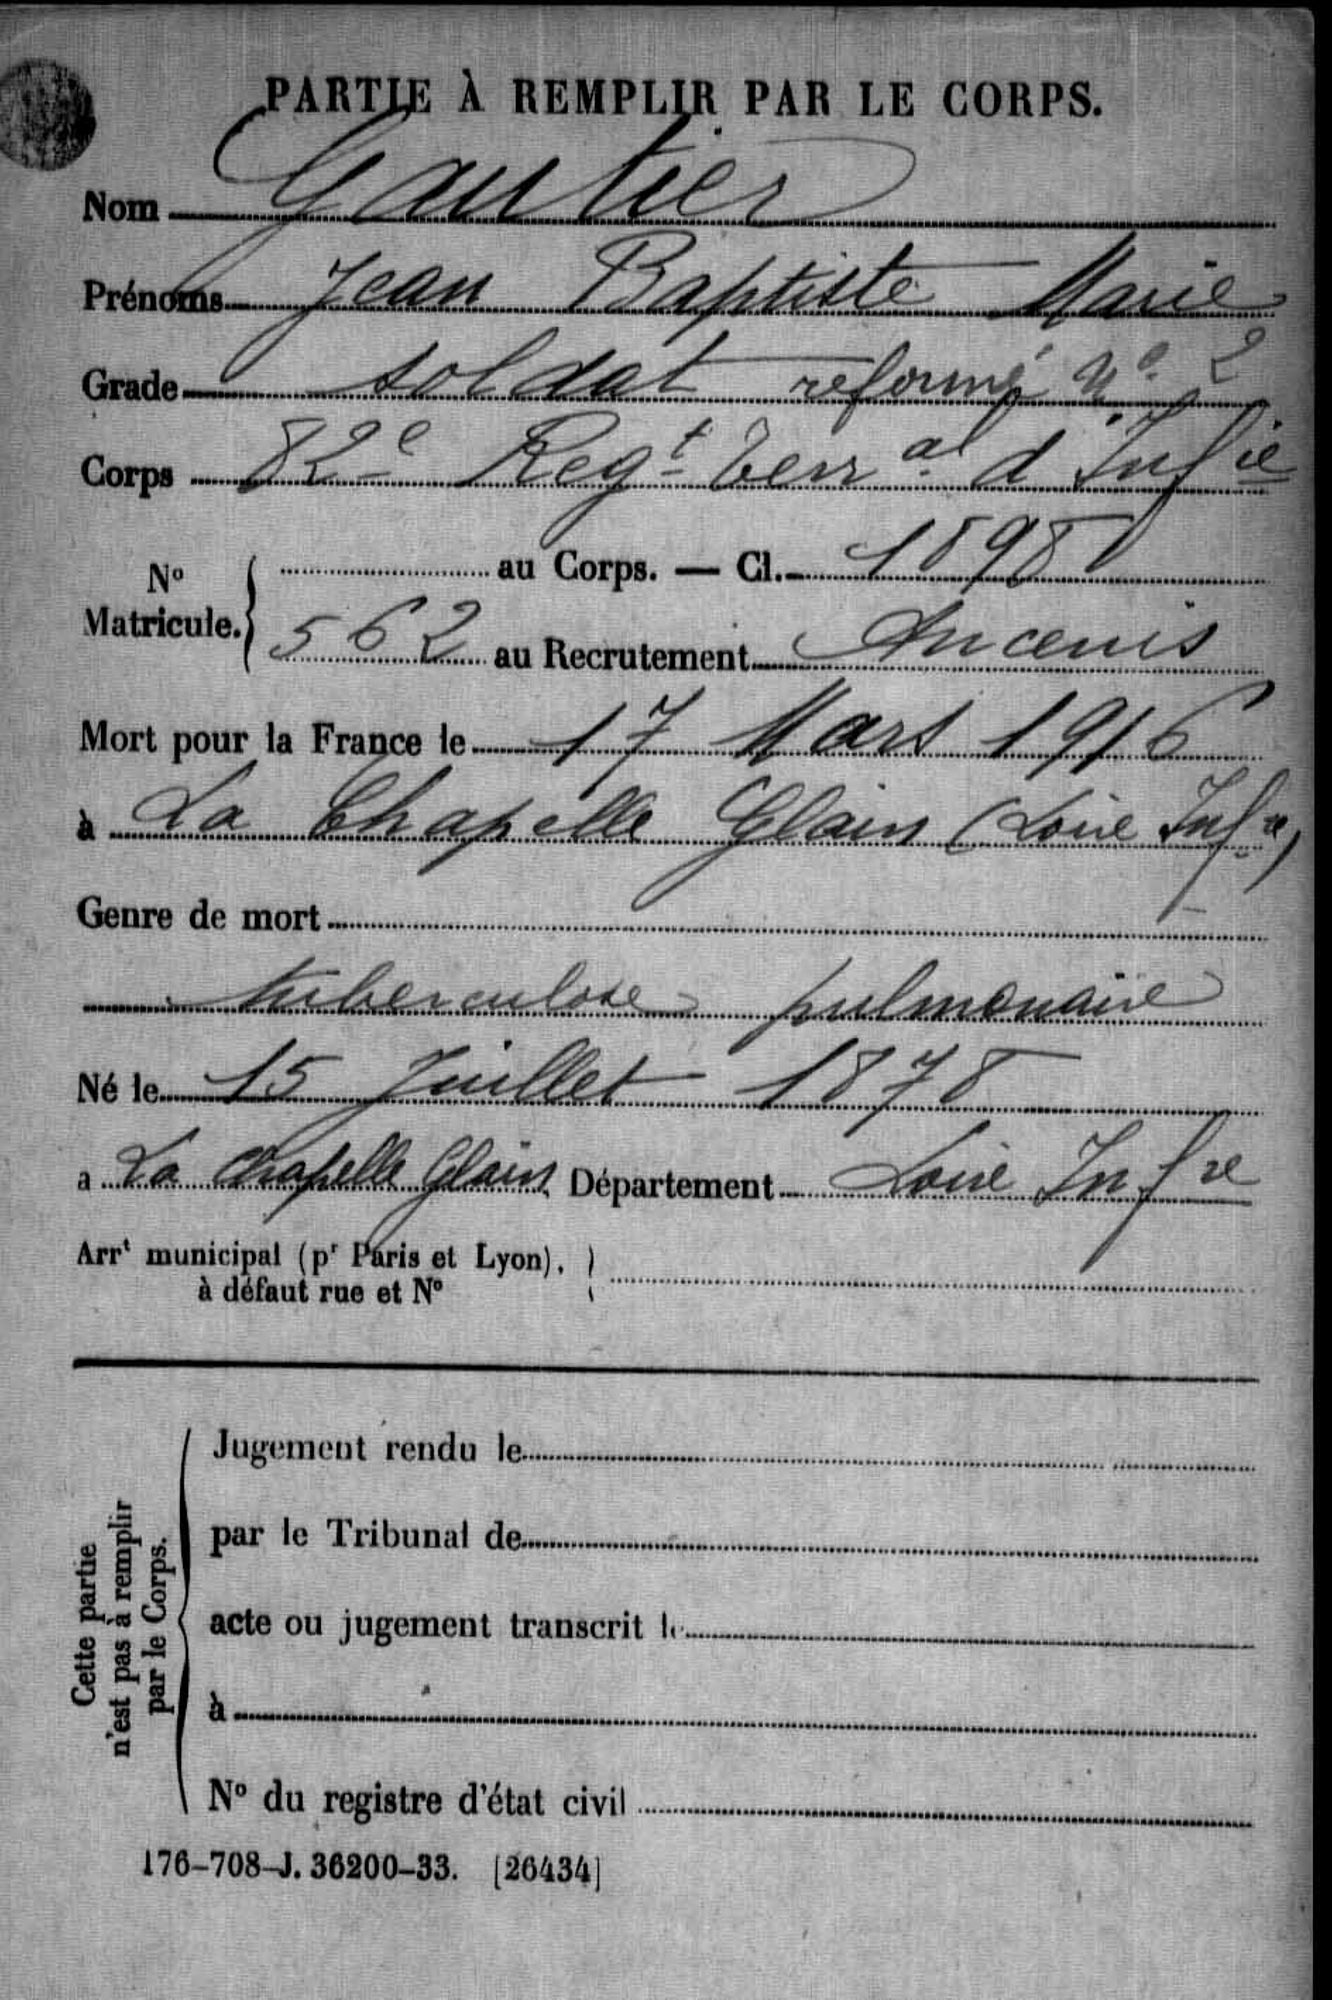 PARTIE À REMPLIR PAR LE CORPS.
Nom Gautier
Prénoms Jean Baptiste Marie
Grade soldat reformé N° 2
Corps 82e Regt Terral d'Infie
N° Matricule. { au Corps. — Cl. 1898
562 au Recrutement Ancenis
Mort pour la France le 17 Mars 1916
à La Chapelle Glain (Loire Infre)
Genre de mort
tuberculose pulmonaire
Né le 15 Juillet 1878
a La Chapelle Glain Département Loire Infre
Arrt municipal (pr Paris et Lyon),
à défaut rue et N°
Cette partie
n'est pas à remplir
par le Corps.
Jugement rendu le
par le Tribunal de
acte ou jugement transcrit le
à
N° du registre d'état civil
176-708-J. 36200-33. [26434]